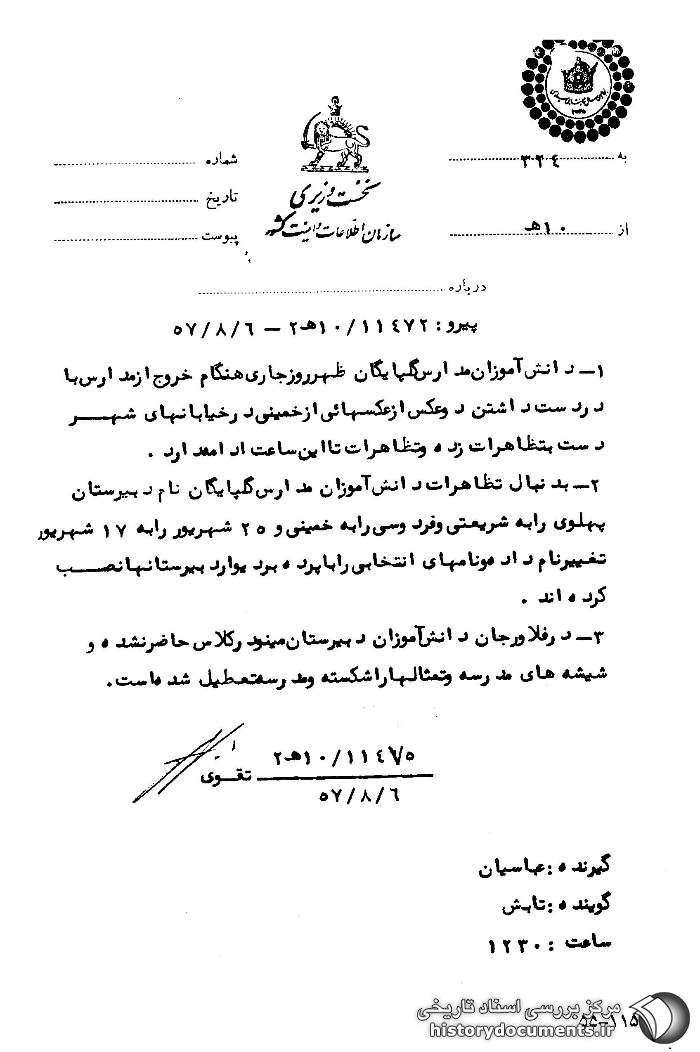 به ۳۲٤
شماره
نخست وزیری
تاریخ
سازمان اطلاعات و امنیت کشور
از ۱۰هـ
پیوست
درباره
پیرو: ۱۰/۱۱٤۷۲هـ۲ – ۵۷/۸/٦
۱– دانش‌آموزان مدارس گلپایگان ظهر روز جاری هنگام خروج از مدارس با
در دست داشتن دو عکس از عکسهائی از خمینی در خیابانهای شهر
دست بتظاهرات زده و تظاهرات تا این ساعت ادامه دارد .
۲– بدنبال تظاهرات دانش‌آموزان مدارس گلپایگان نام دبیرستان
پهلوی را به شریعتی و فردوسی را به خمینی و ۲۵ شهریور را به ۱۷ شهریور
تغییر نام داده و نامهای انتخابی را با پرده بر دیوار دبیرستانها نصب
کرده اند .
۳– در فلاورجان دانش‌آموزان دبیرستان مینو در کلاس حاضر نشده و
شیشه های مدرسه و تمثالها را شکسته و مدرسه تعطیل شده است.
۱۰/۱۱٤۷۵هـ۲
تقوی
۵۷/۸/٦
گیرنده : عباسیان
گوینده : تابش
ساعت : ۱۲۳۰
۵۵–۱۱۵
مرکز بررسی اسناد تاریخی
historydocuments.ir